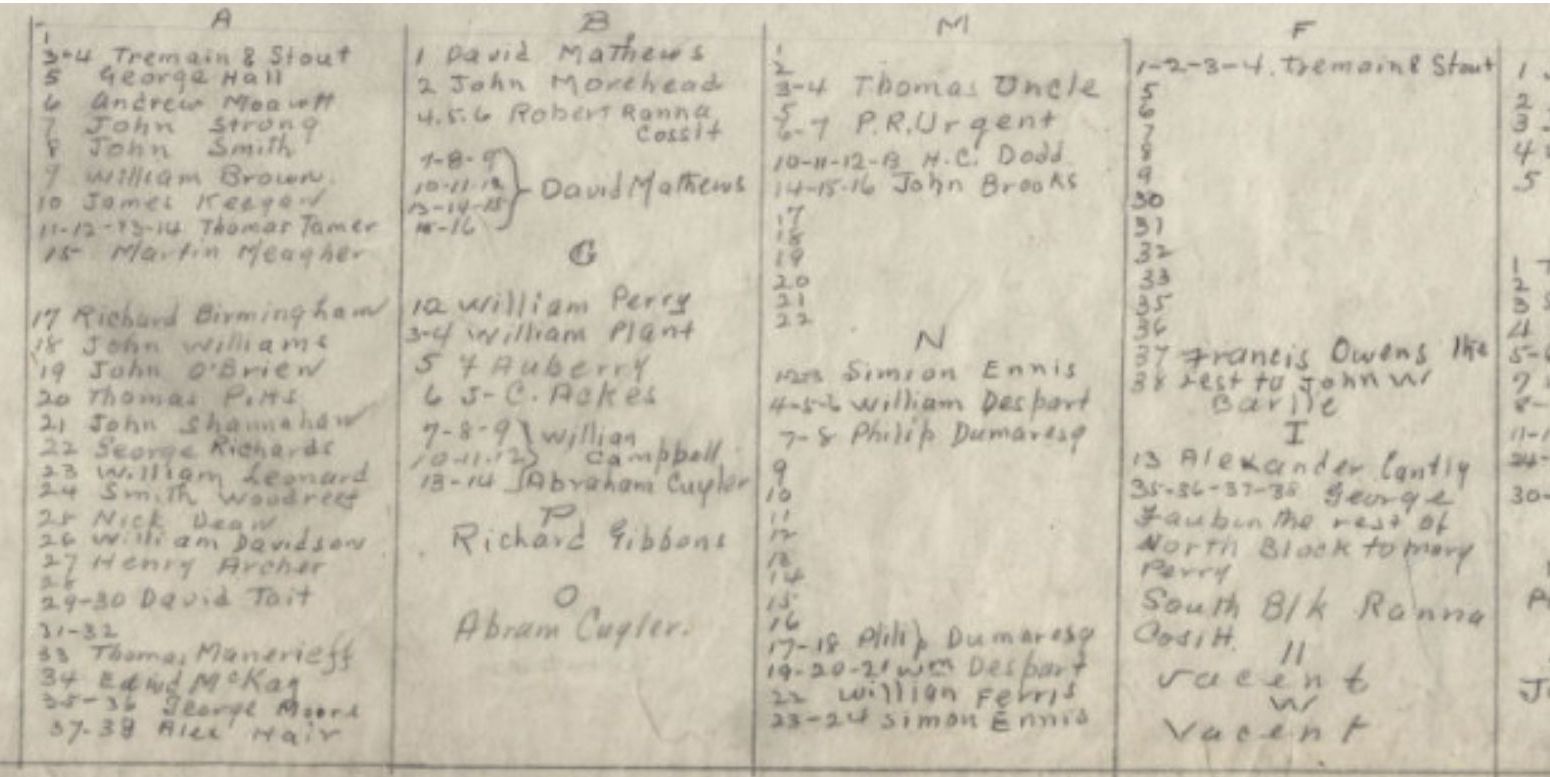 A
1
3-4 Tremain & Stout
5 George Hall
6 Andrew
7 John Strong
8 John Smith
9 William Brown
10 James Keegan
11-12-13-14 Thomas Tamer
15 Martin Meagher
17 Richard Birmingham
18 John Williams
19 John O'Brien
20 Thomas Pitts
21 John Shannahan
22 George Richards
23 William Leonard
24 Smith Woodreef
25 Nick Dean
26 William Davidson
27 Henry Archer
28
29-30 David Tait
31-32
33 Thomas Manerieff
34 Edwd McKag
35-36 George Moore
37-38 Alex Hair
B
1 David Mathews
2 John Morehead
4.5.6 Robert Ranna
Cossit
7-8-9
10-11-12
David Mathews
13-14-15
16
G
12 William Perry
3-4 William Plant
5 F Auberry
6 J-C. Ackes
7-8-9 Willian
10-11-12 Campbell
13-14 Abraham Cuyler
P
Richard Gibbons
O
Abram Cuyler.
M
1
2
3-4 Thomas Uncle
5
6-7 P.R. Urgent
10-11-12-13 H.C. Dodd
14-15-16 John Brooks
17
18
19
20
21
22
N
1-2-3 Simion Ennis
4-5-6 William Despart
7-8 Philip Dumaresq
9
10
11
12
13
14
15
16
17-18 Philip Dumaresq
19-20-21 Wm Despart
22 Willian Ferris
23-24 Simon Ennis
F
1-2-3-4. Tremain & Stout
5
6
7
8
9
30
31
32
33
35
36
37 Francis Owens the
38 rest to John W
Barlle
I
13 Alexander Cantly
35-36-37-38 George
Taubin the rest of
North Block to mary
Perry
South Blk Ranna
Cosit.
11
vacent
W
Vacent
1
2
3
4
5
1
2
3
4
5-6
7
8-
11-1
24-
30-